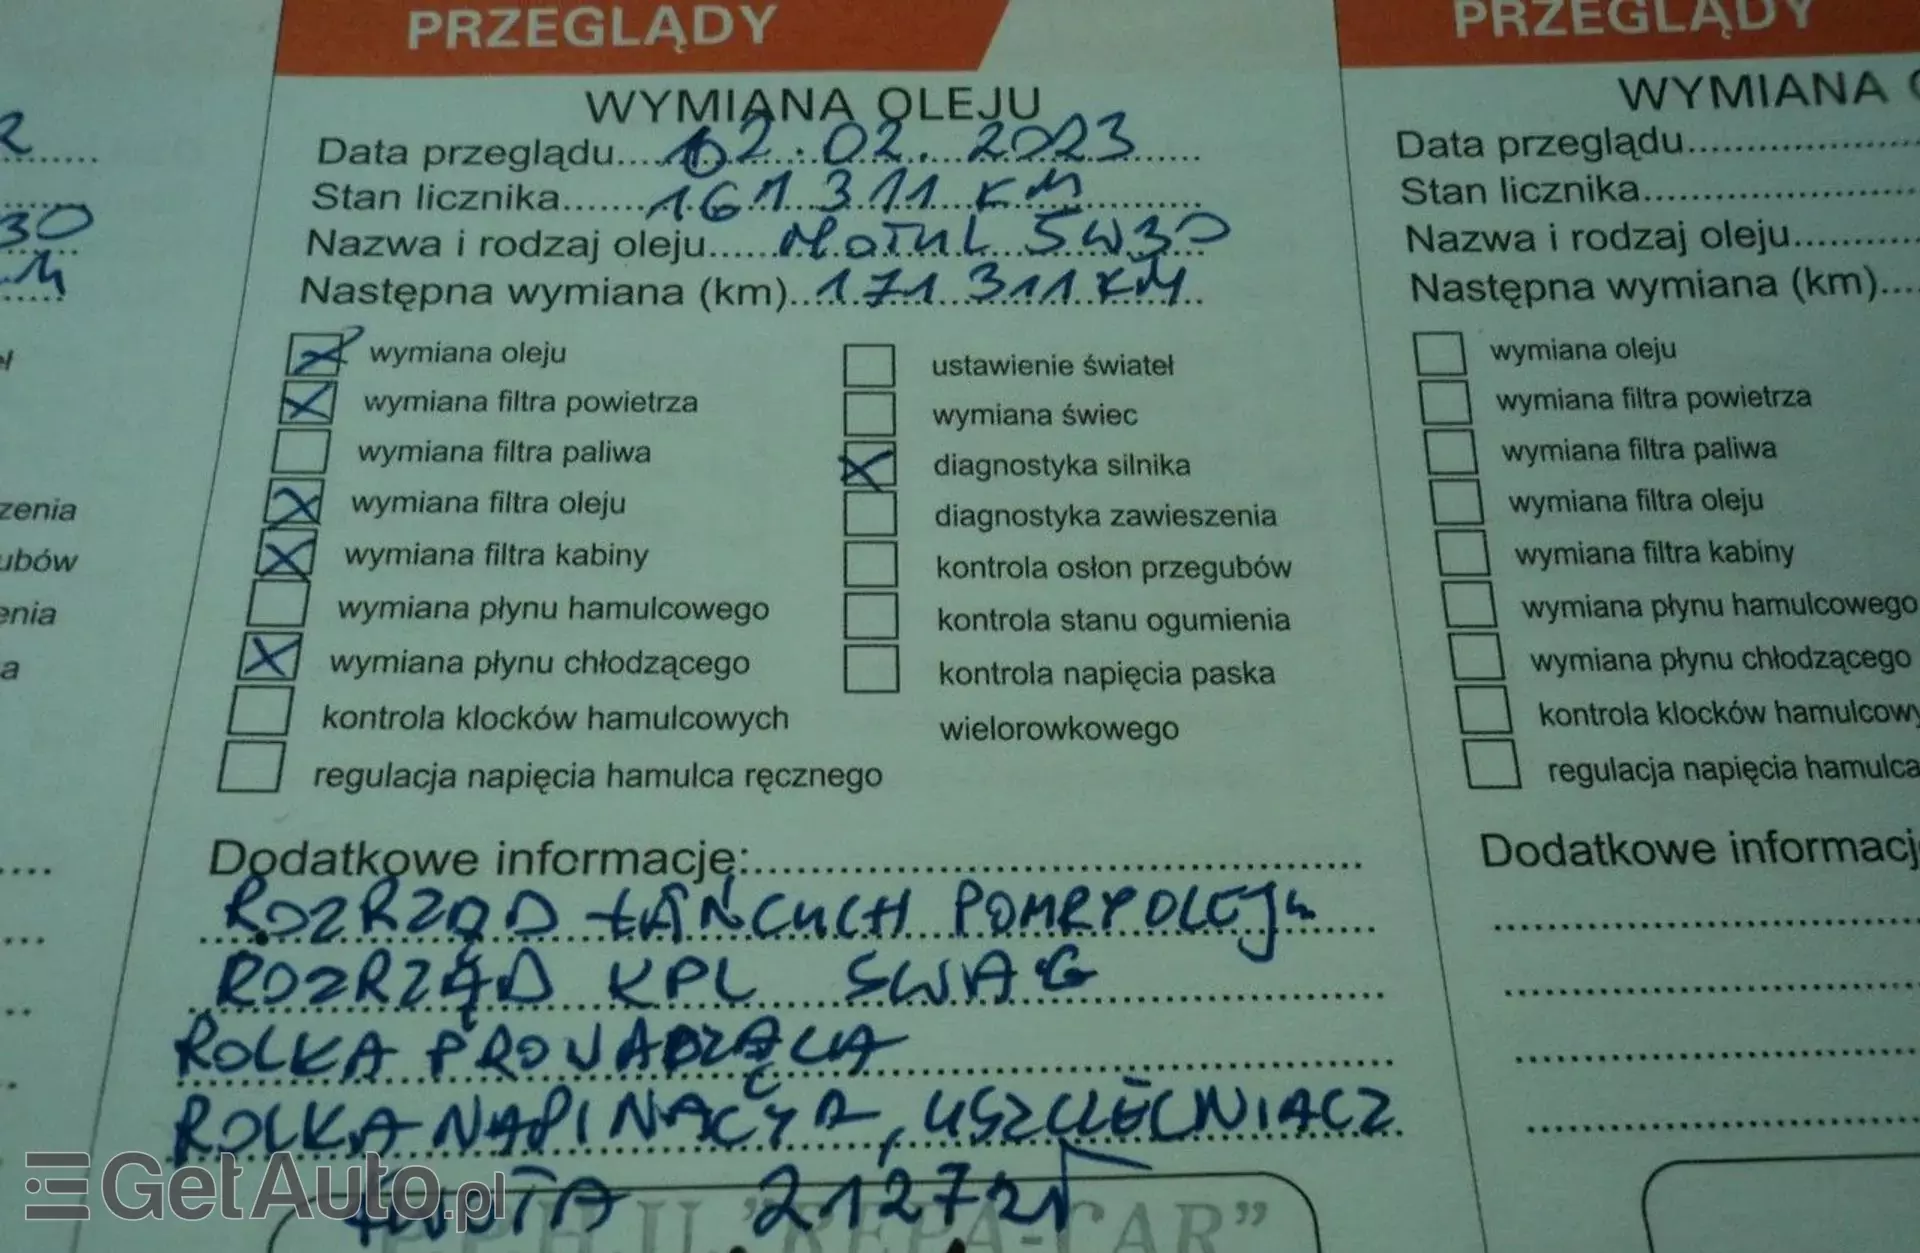 PRZEGLĄDY
WYMIANA OLEJU
Data przeglądu....02.02.2023
Stan licznika.......161 311 KM
Nazwa i rodzaj oleju.....MOTUL 5W30
Następna wymiana (km)..171 311 KM
wymiana oleju
wymiana filtra powietrza
wymiana filtra paliwa
wymiana filtra oleju
wymiana filtra kabiny
wymiana płynu hamulcowego
wymiana płynu chłodzącego
kontrola klocków hamulcowych
regulacja napięcia hamulca ręcznego
ustawienie świateł
wymiana świec
diagnostyka silnika
diagnostyka zawieszenia
kontrola osłon przegubów
kontrola stanu ogumienia
kontrola napięcia paska
wielorowkowego
Dodatkowe informacje:
ROZRZĄD ŁAŃCUCH POMPY OLEJU
ROZRZĄD KPL SWAG
ROLKA PROWADZĄCA
ROLKA NAPINAJĄCA, USZCZELNIACZ
KWOTA 2127 zł
P.P.H.U. "REPA-CAR"
PRZEGLĄDY
WYMIANA O
Data przeglądu
Stan licznika
Nazwa i rodzaj oleju
Następna wymiana (km)
wymiana oleju
wymiana filtra powietrza
wymiana filtra paliwa
wymiana filtra oleju
wymiana filtra kabiny
wymiana płynu hamulcowego
wymiana płynu chłodzącego
kontrola klocków hamulcowy
regulacja napięcia hamulca
Dodatkowe informacj
30
zenia
ubów
enia
a
GetAuto.pl